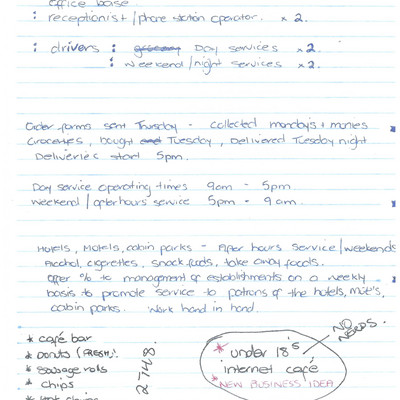 office base
: receptionist / phone station operator. x 2.
: drivers : Day services x 2.
: Weekend / night services x 2.
Order forms sent Thursday - collected monday's + monies
Groceries, bought Tuesday, Delivered Tuesday night
Deliveries start 5pm.
Day service operating times 9am - 5pm.
Weekend / afterhours service 5pm - 9am.
Hotels, Motels, cabin parks - After hours service / weekends
Alcohol, cigerettes, snack foods, take away foods.
Offer % to management of establishments on a weekly
basis to promote service to patrons of the hotels, mot's,
cabin parks. Work hand in hand.
* café bar
* Donuts (FRESH).
* Sausage rolls
* chips
2748.
NO NERDS.
* under 18's
internet café
* NEW BUSINESS IDEA